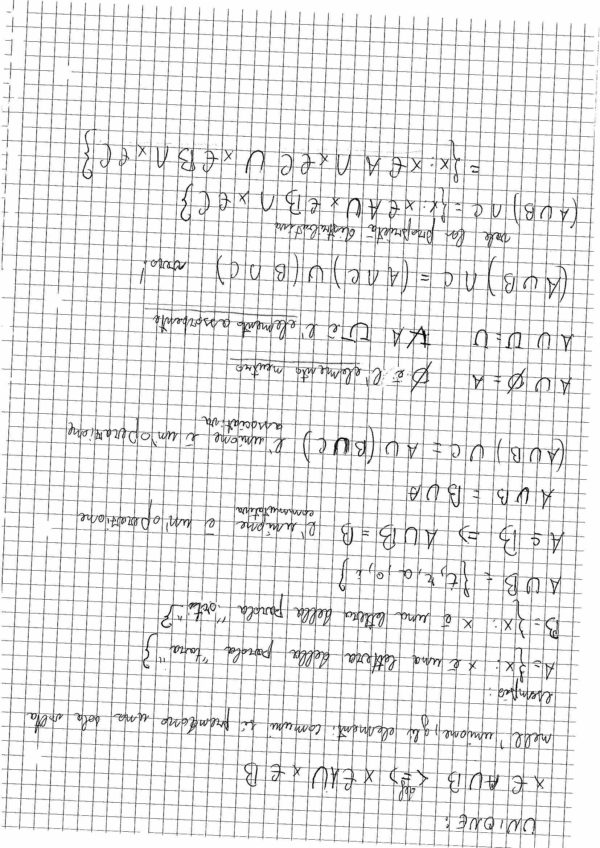 UNIONE:
x ∈ A ∪ B <=def=> x ∈ A ∪ x ∈ B
nell'unione, gli elementi comuni si prendono una sola volta
esempio:
A = {x: x è una lettera della parola "tara"}
B = {x: x è una lettera della parola "orti"}
A ∪ B = {t, r, a, o, i}
A ⊆ B => A ∪ B = B
A ∪ B = B ∪ A l'unione è un'operazione commutativa
(A ∪ B) ∪ C = A ∪ (B ∪ C) l'unione è un'operazione associativa
A ∪ ∅ = A ∅ è l'elemento neutro
A ∪ U = U ∀A U è l'elemento assorbente
(A ∪ B) ∩ C = (A ∩ C) ∪ (B ∩ C) vero!
vale la proprietà distributiva
(A ∪ B) ∩ C = {x: x ∈ A ∪ x ∈ B ∩ x ∈ C}
= {x: x ∈ A ∩ x ∈ C ∪ x ∈ B ∩ x ∈ C}